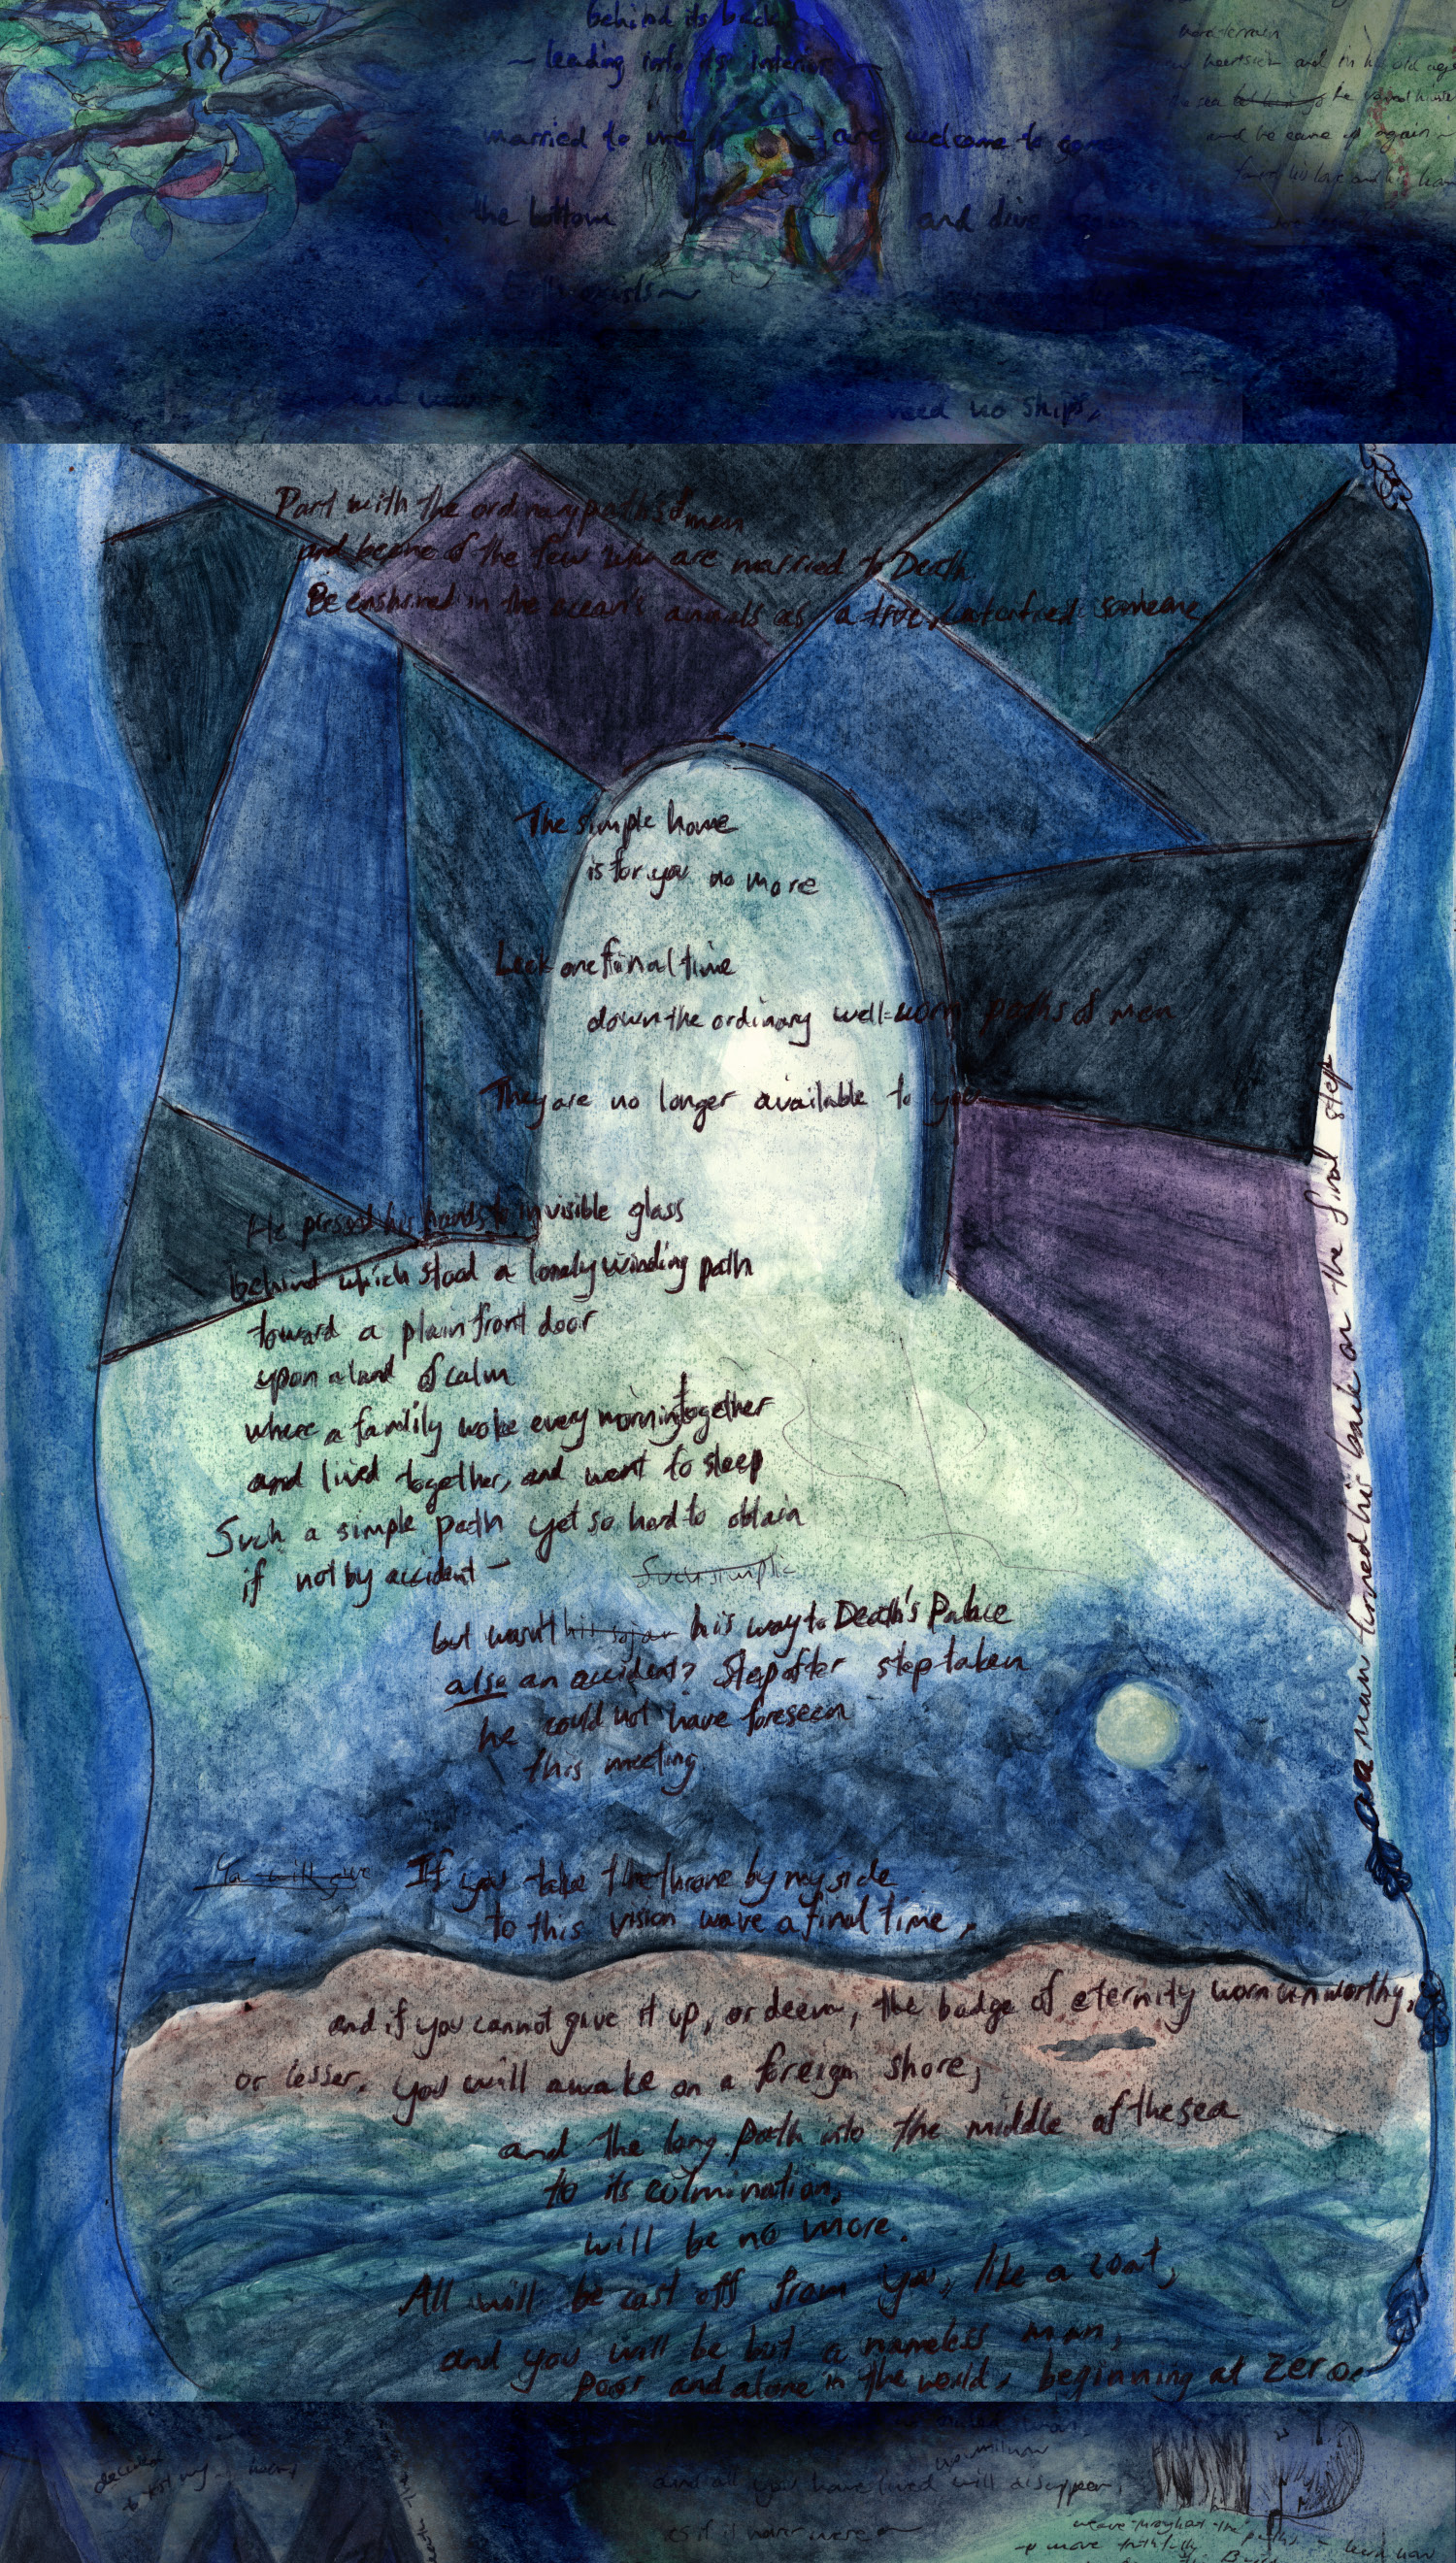 behind its back
~ leading into its interior ~
married to me are welcome to come
the bottom and dive
and in his old age
the sea he
and he came up again
his love and his
need no ships,
Part with the ordinary paths of men
and become of the few who are married to Death
Be enshrined in the ocean's annals as a true someone
The simple home
is for you no more
Look one final time
down the ordinary well-worn paths of men
They are no longer available to you
He pressed his hands to invisible glass
behind which stood a lonely winding path
toward a plain front door
upon a land of calm
where a family woke every morning together
and lived together, and went to sleep
Such a simple path yet so hard to obtain
if not by accident —
Such simple
but wasn't his way to Death's Palace
also an accident? Step after step taken
he could not have foreseen
this meeting
as a man turned his back on the final step
You will give If you take the throne by my side
to this vision wave a final time,
and if you cannot give it up, or deem, the badge of eternity worn unworthy,
or lesser, you will awake on a foreign shore,
and the long path into the middle of the sea
to its culmination,
will be no more.
All will be cast off from you, like a coat,
and you will be but a nameless man,
poor and alone in the world, beginning at zero.
my heart
and all you have loved will disappear,
as if it never were